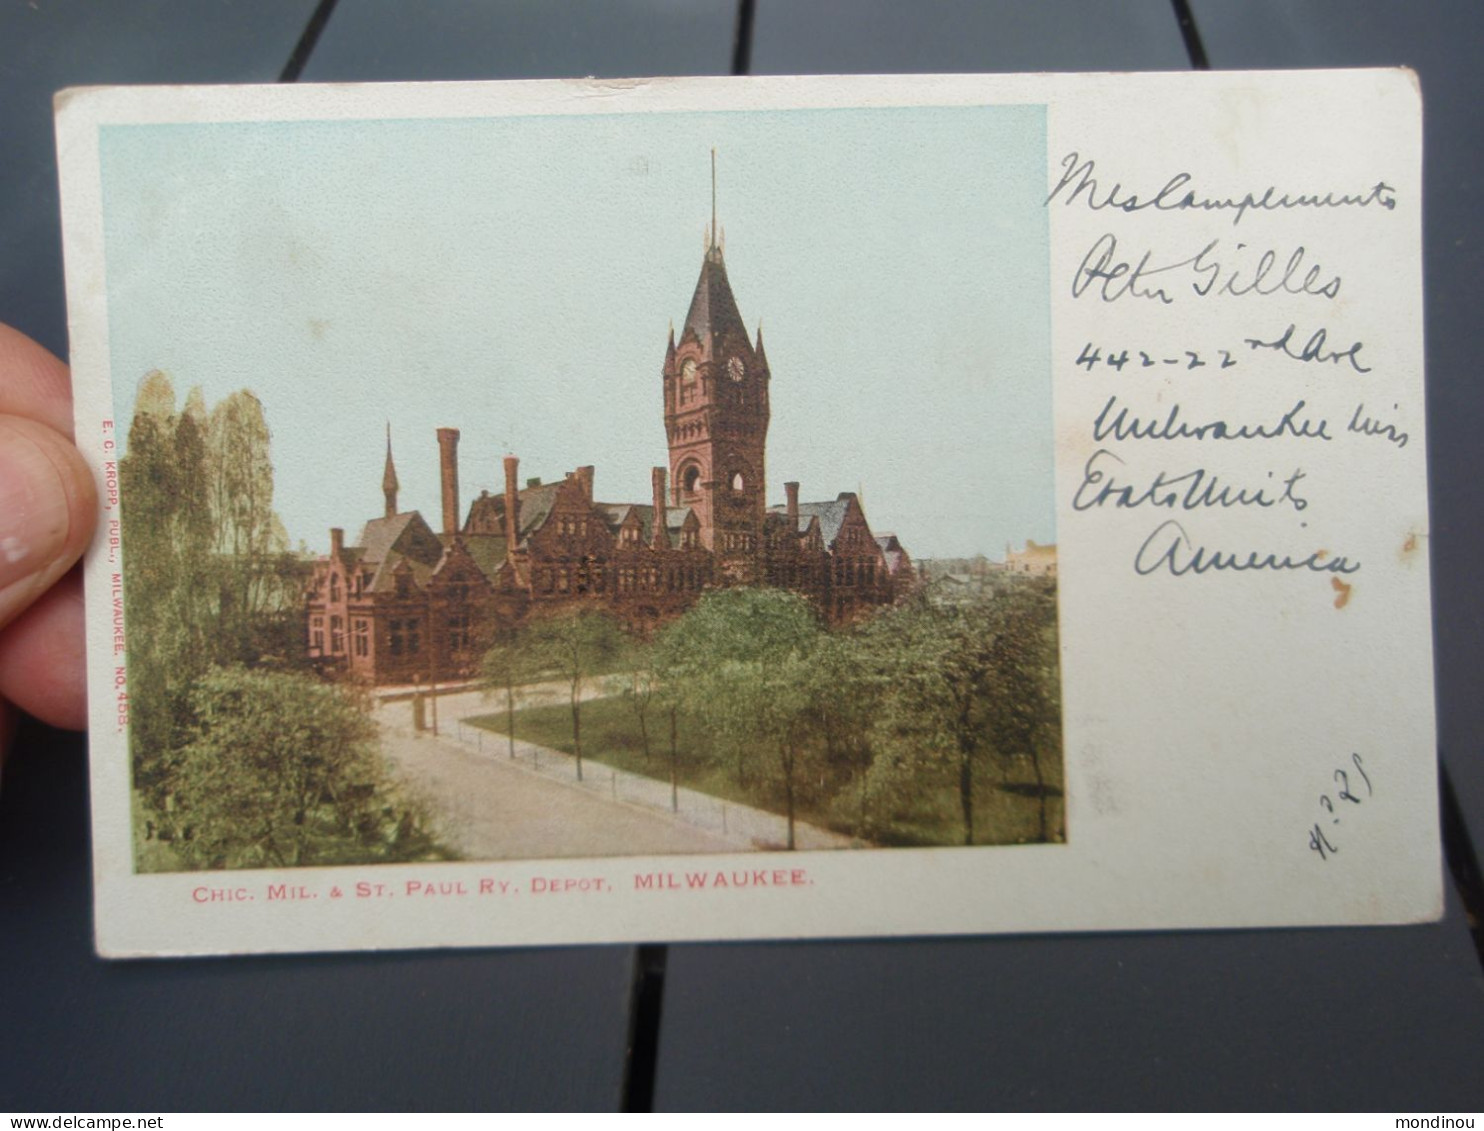 Mes Complements
Peter Gilles
442-22nd Ave
Milwaukee Wiss
Etats Units
America
No. 25
E. C. KROPP, PUBL., MILWAUKEE. NO. 458.
CHIC. MIL. & ST. PAUL RY. DEPOT, MILWAUKEE.
www.delcampe.net
mondinou